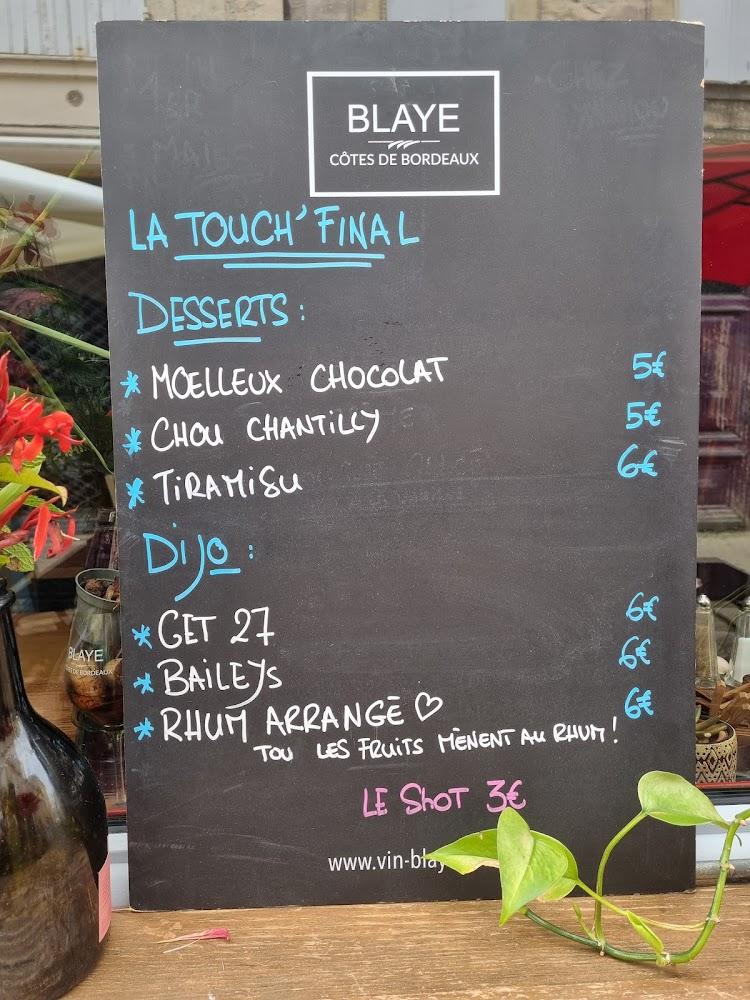 BLAYE
CÔTES DE BORDEAUX
LA TOUCH' FINAL
DESSERTS :
* MOELLEUX CHOCOLAT 5€
* CHOU CHANTILLY 5€
* TIRAMISU 6€
DIJO :
* GET 27 6€
* BAILEYS 6€
* RHUM ARRANGÉ ♡ 6€
TOU LES FRUITS MÈNENT AU RHUM !
LE SHOT 3€
www.vin-blay
BLAYE
CÔTES DE BORDEAUX